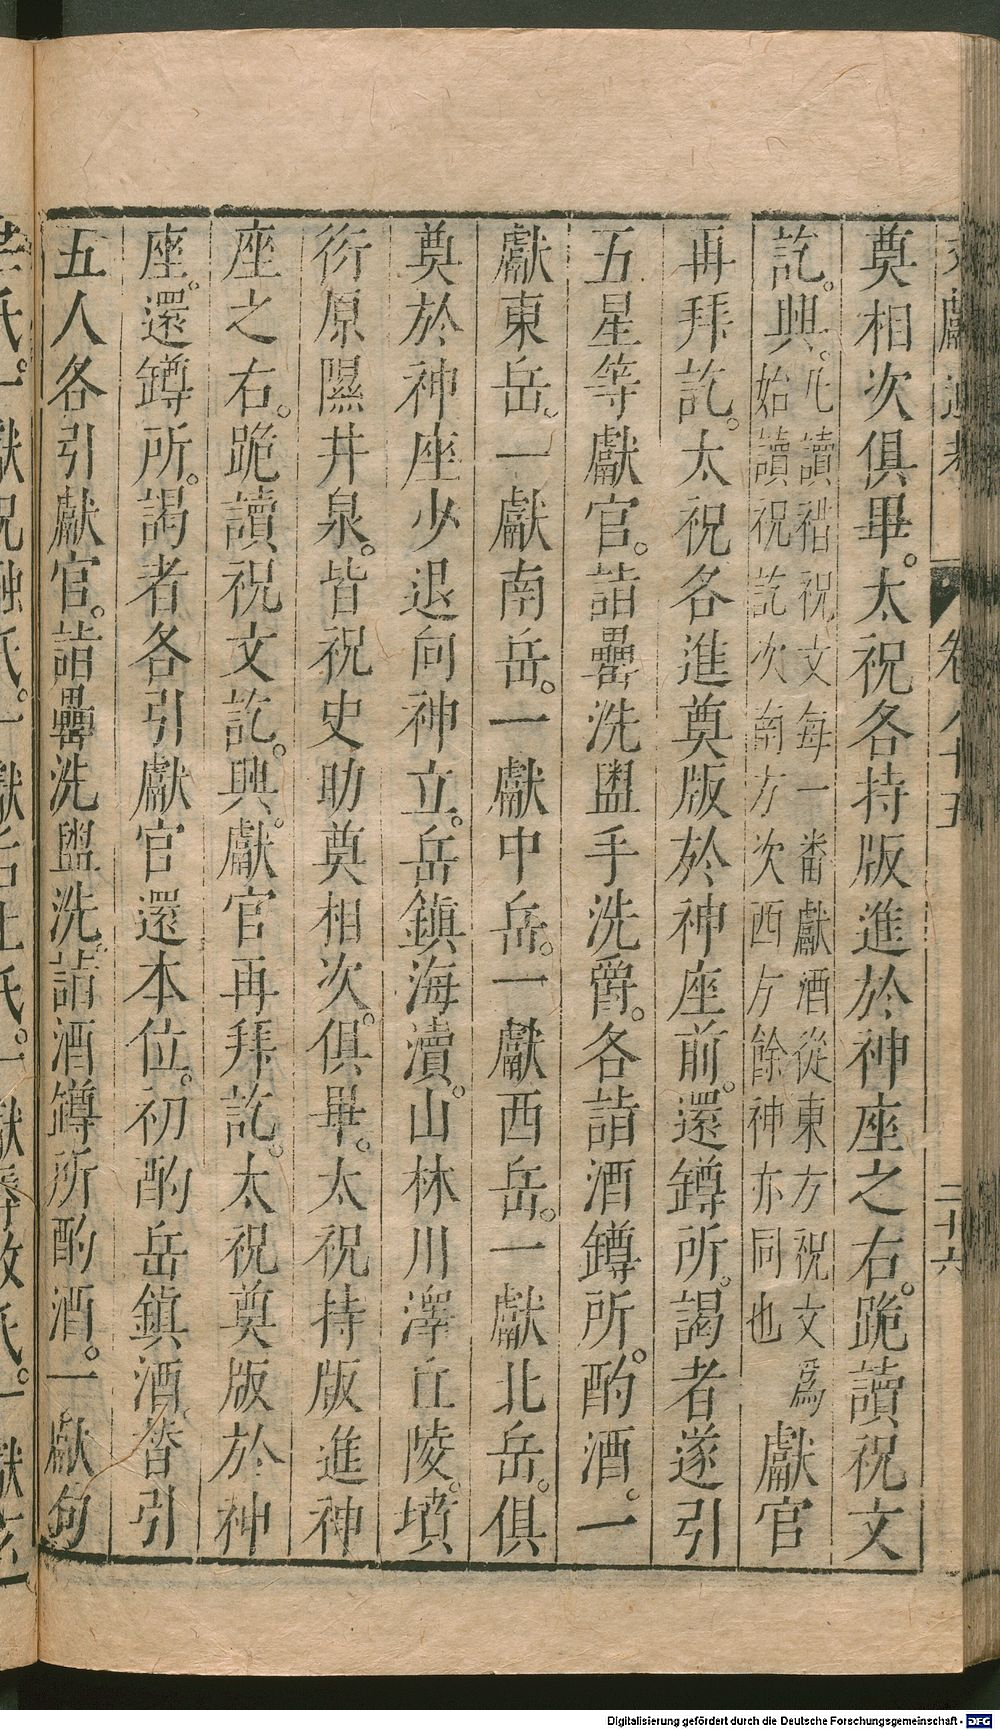 奠相次俱畢。太祝各持版進於神座之右。跪讀祝文
訖。興。凡讀䄍祝文每一番獻酒從東方祝文爲
始讀祝訖次南方次西方餘神亦同也
獻官
再拜訖。太祝各進奠版於神座前。還罇所。謁者遂引
五星等獻官。詣罍洗盥手洗爵。各詣酒罇所。酌酒。一
獻東岳。一獻南岳。一獻中岳。一獻西岳。一獻北岳。俱
奠於神座少退向神立。岳鎮海瀆。山林川澤丘陵。墳
衍原隰井泉。皆祝史助奠相次。俱畢。太祝持版進神
座之右。跪讀祝文訖。興。獻官再拜訖。太祝奠版於神
座。還罇所。謁者各引獻官還本位。初酌岳鎮酒。替引
五人各引獻官。詣罍洗盥洗。詣酒罇所酌酒。一獻句
卷八十五
二十六
Digitalisierung gefördert durch die Deutsche Forschungsgemeinschaft - DFG